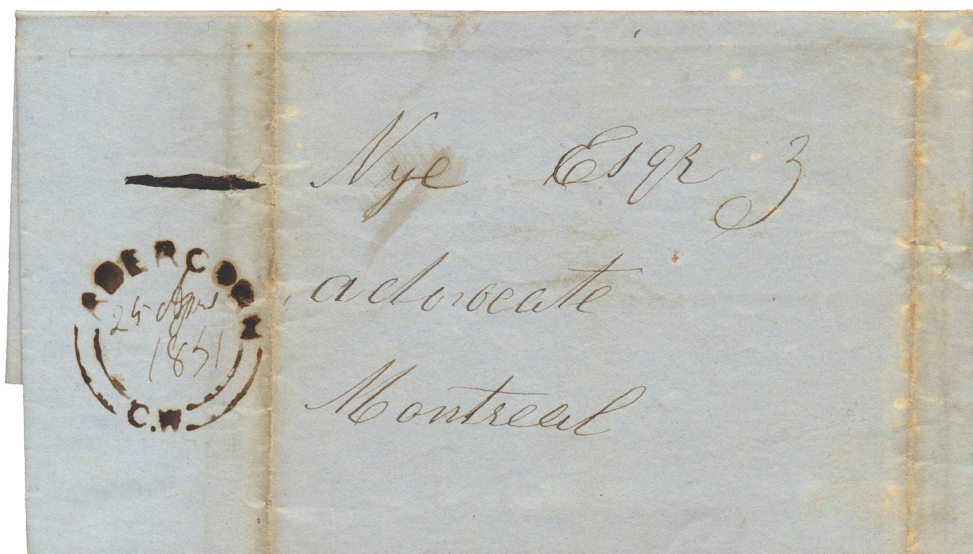 Nye Esqr 3
advocate
Montreal
ABERCORN
25 Apr
1851
C.W.